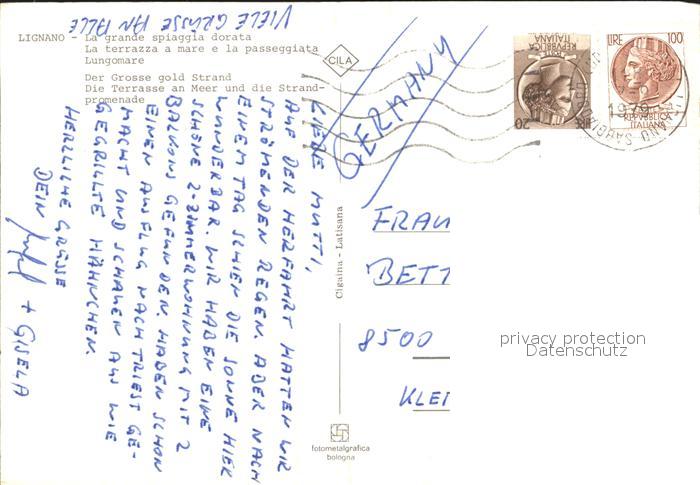 LIGNANO - La grande spiaggia dorata
La terrazza a mare e la passeggiata
Lungomare
Der Grosse gold Strand
Die Terrasse an Meer und die Strand-
promenade
CILA
VIELE GRÜSSE AN ALLE
LIEBE MUTTI,
AUF DER HERFAHRT HATTEN WIR
STRÖMENDEN REGEN. ABER NACH
EINEM TAG SCHIEN DIE SONNE HIER
WUNDERBAR. WIR HABEN EINE
SCHÖNE 2-ZIMMERWOHNUNG MIT 2
BALKONS GEFUNDEN. HABEN SCHON
EINEN AUSFLUG NACH TRIEST GE-
MACHT UND SCHAUEN AUS WIE
GEGRILLTE HÄHNCHEN.
HERZLICHE GRÜSSE
DEIN
+ GISELA
GERMANY
Cigaina - Latisana
fotometalgrafica
bologna
REPUBBLICA
ITALIANA
LIRE
20
LIRE 100
REPVBBLICA
ITALIANA
FRAU
BETT
8500
KLEI
privacy protection
Datenschutz